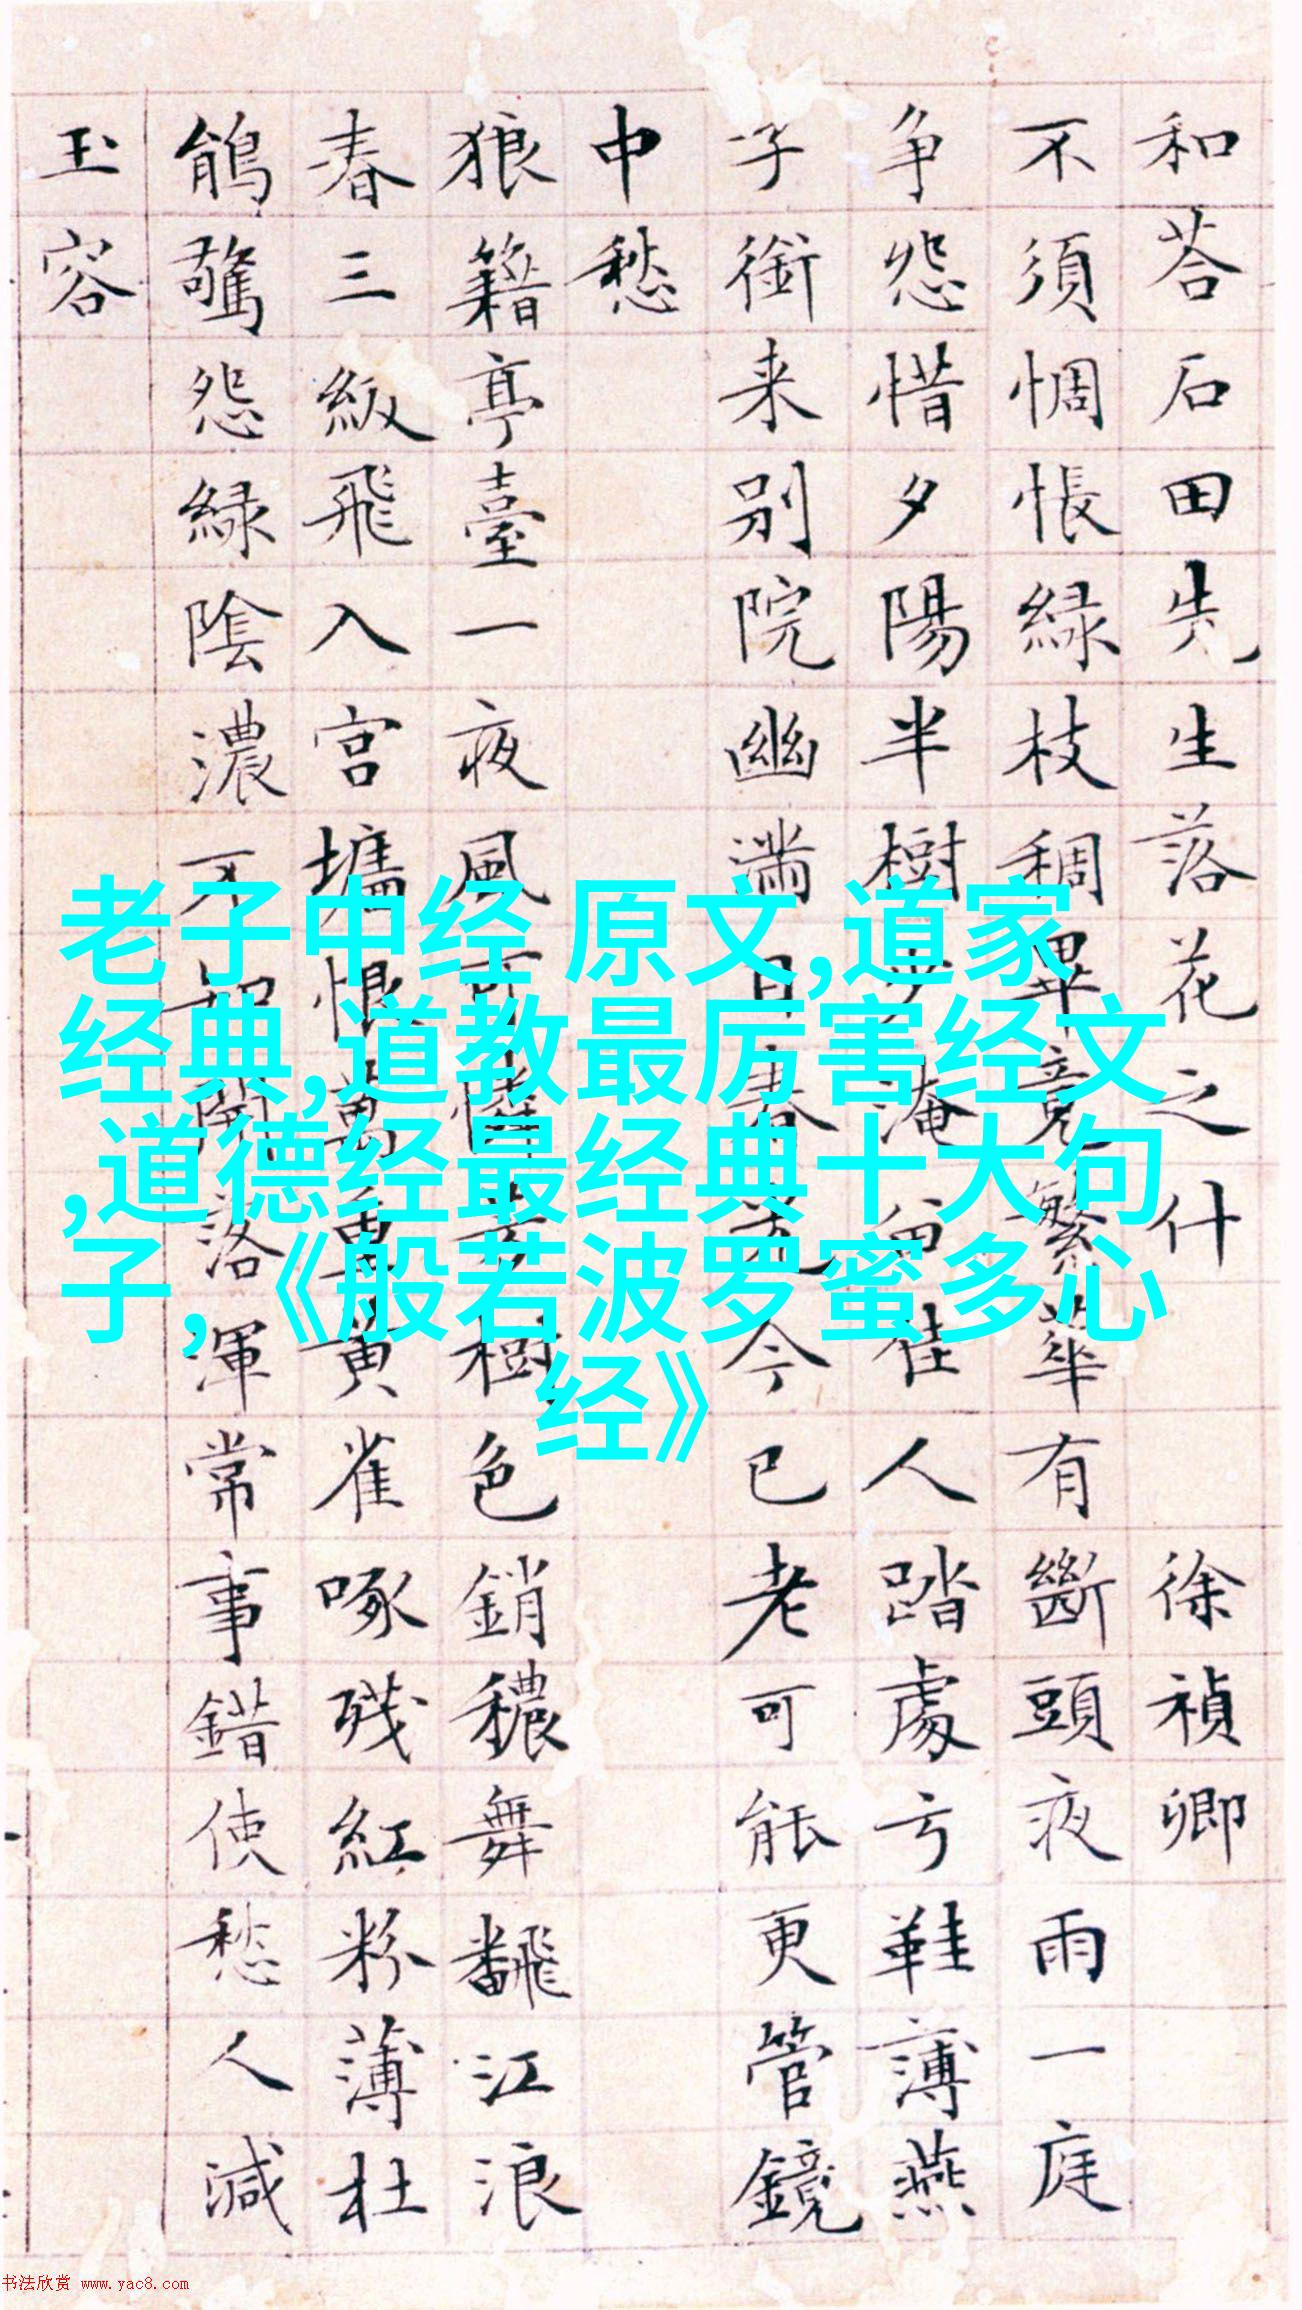 和荅石田先生落花之什 徐禎卿
不須惆悵綠枝稠畢竟繁華有斷頭夜雨一庭
争怨惜夕陽半樹少淹留佳人踏處弓鞋薄燕
子銜来別院幽滿目春光今已老可能更管鏡
中愁
狼籍亭臺一夜風可憐芳樹色銷穠舞飜江浪
春三級飛入宮墻恨萬重黄雀啄殘紅粉薄杜
鵑驚怨綠陰濃不知開落渾常事錯使愁人減
玉容
老子中经 原文,道家
经典,道教最厉害经文
,道德经最经典十大句
子,《般若波罗蜜多心
经》
书法欣赏 www.yac8.com